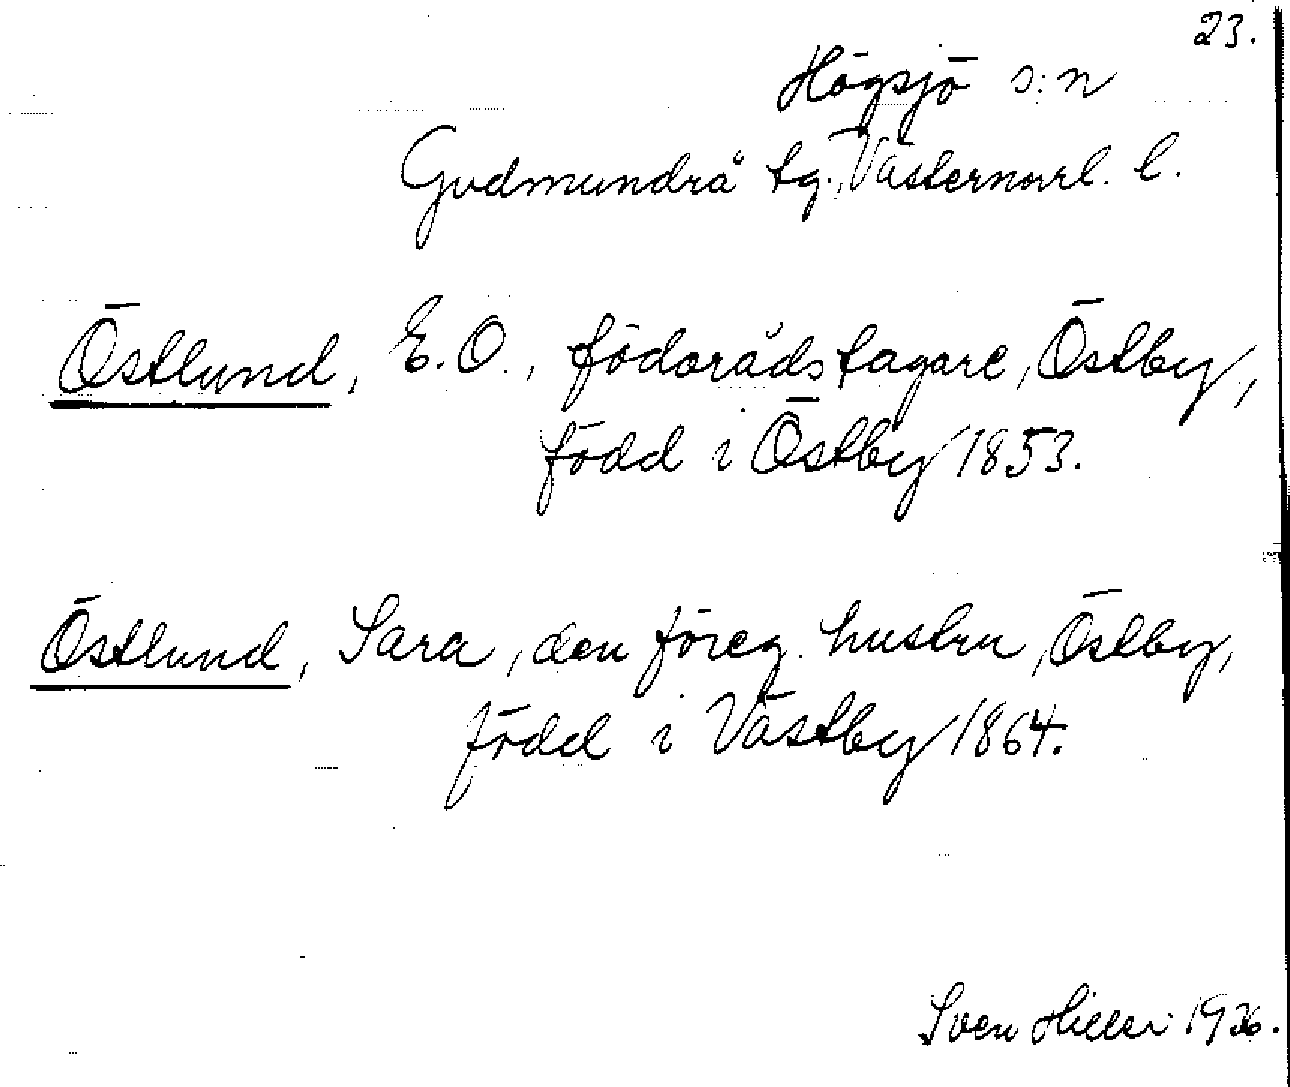 23.
Högsjö s:n
Gudmundrå tg., Västernorrl. l.
Östlund, E.O., födorådstagare, Östby,
född i Östby 1853.
Östlund, Sara, den föreg. hustru, Östby,
född i Västby 1864.
Sven Hiller 1936.